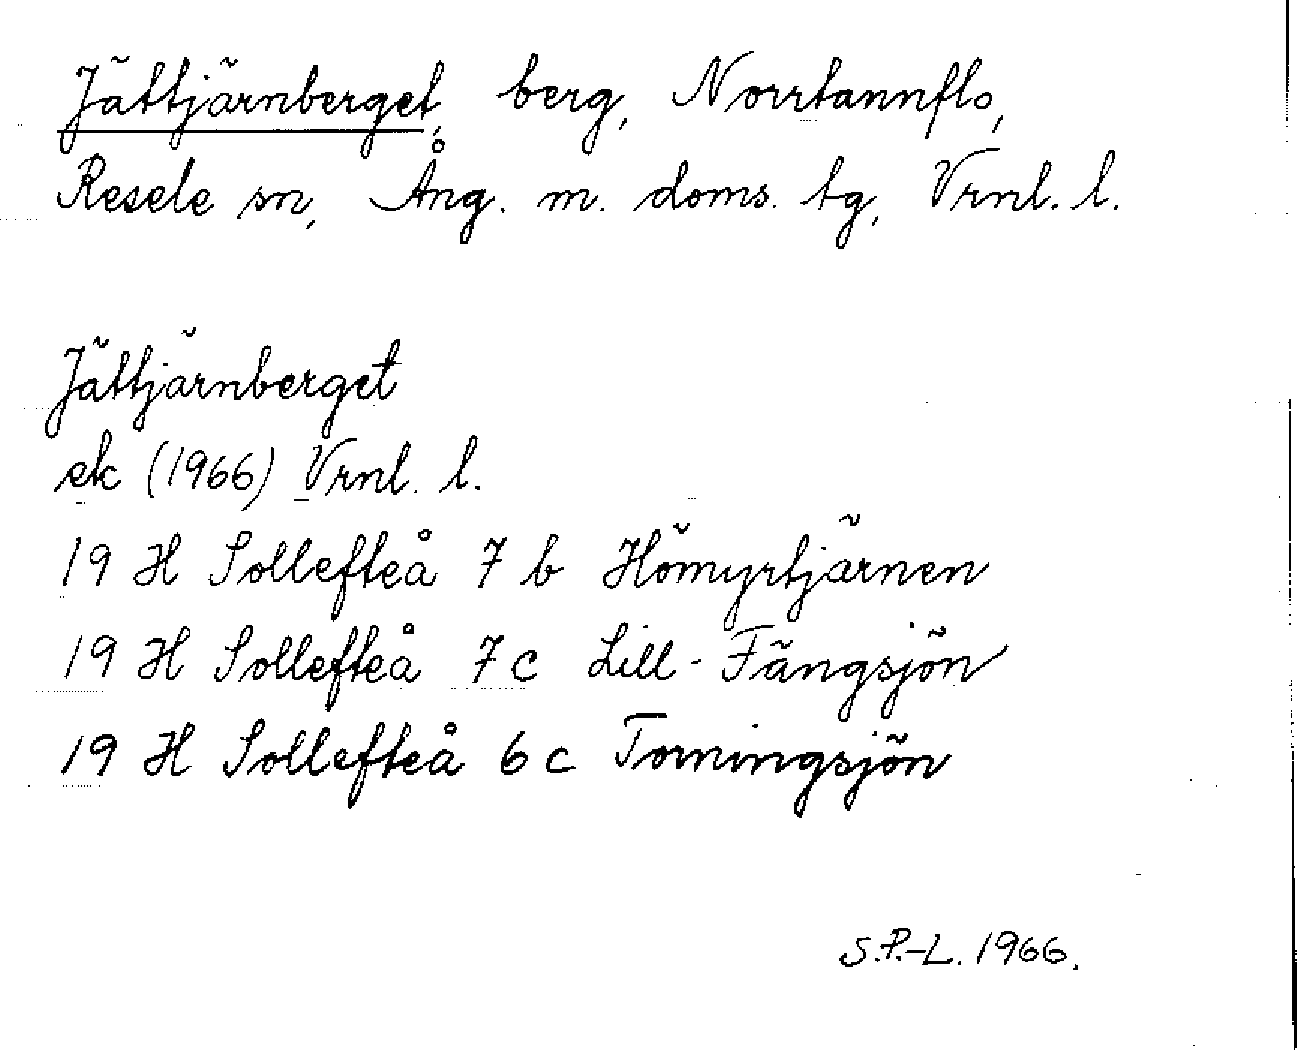 Jättjärnberget, berg, Norrtannflo,
Resele sn, Ång. m. doms. tg, Vrnl. l.
Jättjärnberget
ek (1966) Vrnl. l.
19 H Sollefteå 7 b Hömyrtjärnen
19 H Sollefteå 7 c Lill-Fängsjön
19 H Sollefteå 6 c Torningsjön
S.P.-L. 1966.